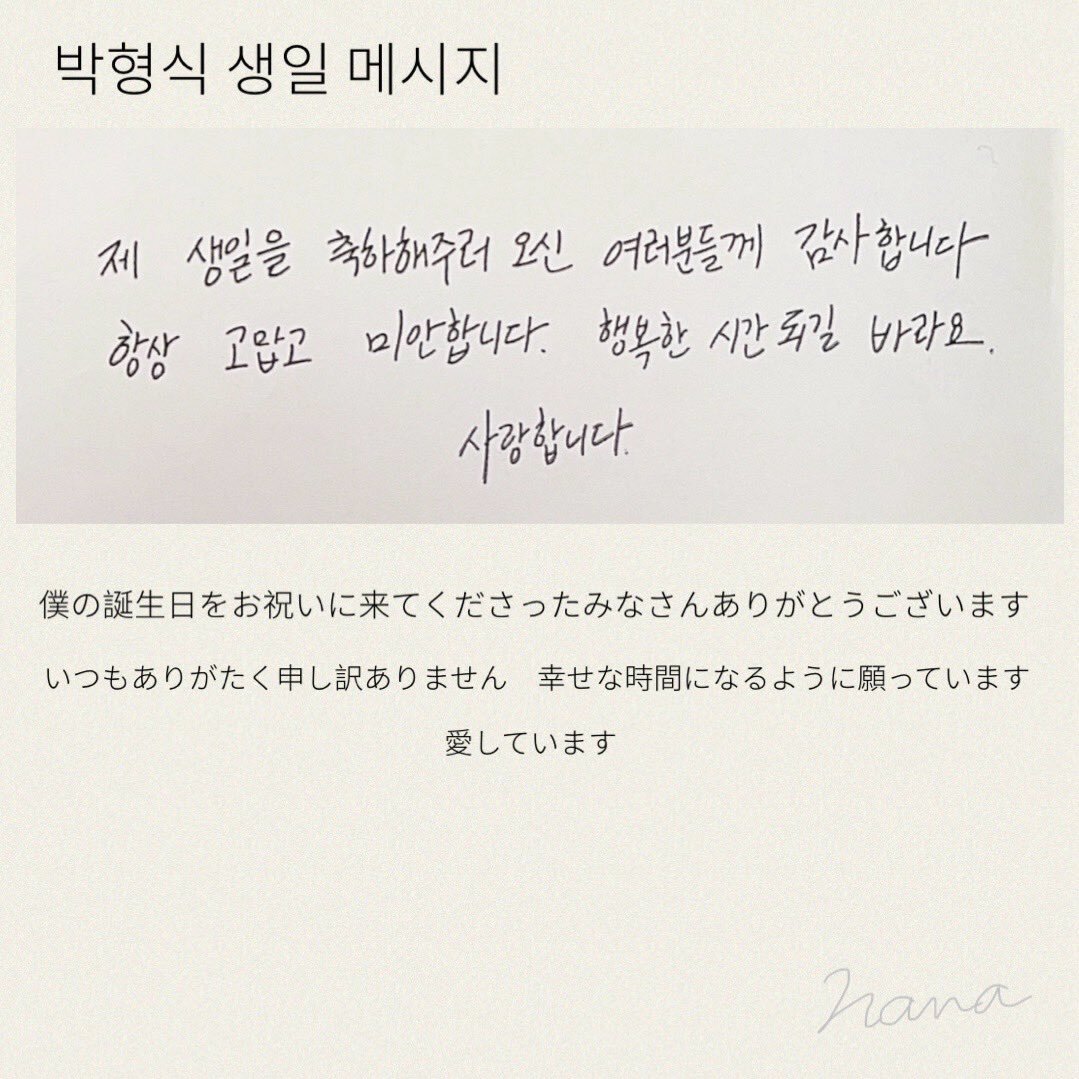 박형식 생일 메시지
제 생일을 축하해주러 오신 여러분들께 감사합니다
항상 고맙고 미안합니다. 행복한 시간 되길 바라요.
사랑합니다.
僕の誕生日をお祝いに来てくださったみなさんありがとうございます
いつもありがたく申し訳ありません　幸せな時間になるように願っています
愛しています
hana